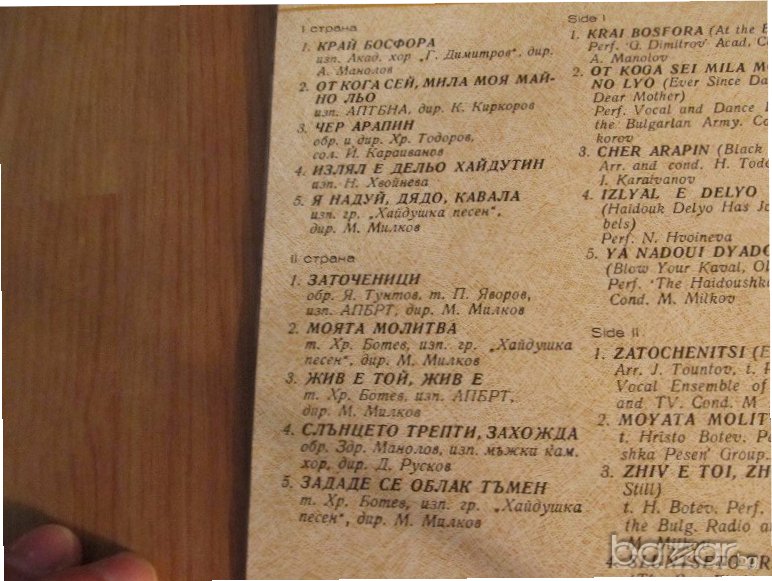 I страна
1. КРАЙ БОСФОРА
изп. Акад. хор „Г. Димитров", дир.
А. Манолов
2. ОТ КОГА СЕЙ, МИЛА МОЯ МАЙ-
НО ЛЬО
изп. АПТБНА, дир. К. Киркоров
3. ЧЕР АРАПИН
обр. и дир. Хр. Тодоров,
сол. Й. Караиванов
4. ИЗЛЯЛ Е ДЕЛЬО ХАЙДУТИН
изп. Н. Хвойнева
5. Я НАДУЙ, ДЯДО, КАВАЛА
изп. гр. „Хайдушка песен",
дир. М. Милков
II страна
1. ЗАТОЧЕНИЦИ
обр. Я. Тунтов, т. П. Яворов,
изп. АПБРТ, дир. М. Милков
2. МОЯТА МОЛИТВА
т. Хр. Ботев, изп. гр. „Хайдушка
песен", дир. М. Милков
3. ЖИВ Е ТОЙ, ЖИВ Е
т. Хр. Ботев, изп. АПБРТ,
дир. М. Милков
4. СЛЪНЦЕТО ТРЕПТИ, ЗАХОЖДА
обр. Здр. Манолов, изп. мъжки кам.
хор, дир. Д. Русков
5. ЗАДАДЕ СЕ ОБЛАК ТЪМЕН
т. Хр. Ботев, изп. гр. „Хайдушка
песен", дир. М. Милков
Side I
1. KRAI BOSFORA (At the
Perf. 'G. Dimitrov' Acad. C
A. Manolov
2. OT KOGA SEI MILA M
NO LYO (Ever Since Da
Dear Mother)
Perf. Vocal and Dance
the Bulgarian Army. Co
korov
3. CHER ARAPIN (Black
Arr. and cond. H. Tode
I. Karaivanov
4. IZLYAL E DELYO
(Haidouk Delyo Has Jo
bels)
Perf. N. Hvoineva
5. YA NADOUI DYADO
(Blow Your Kaval, Ol
Perf. 'The Haidoushk
Cond. M. Milkov
Side II
1. ZATOCHENITSI (E
Arr. J. Tountov, t.
Vocal Ensemble of
and TV. Cond. M
2. MOYATA MOLIT
t. Hristo Botev. Pe
shka Pesen' Group.
3. ZHIV E TOI, ZH
Still)
t. H. Botev. Perf.
the Bulg. Radio a
M. Milkov
4. SLUNTSETO TR
bazar.bg